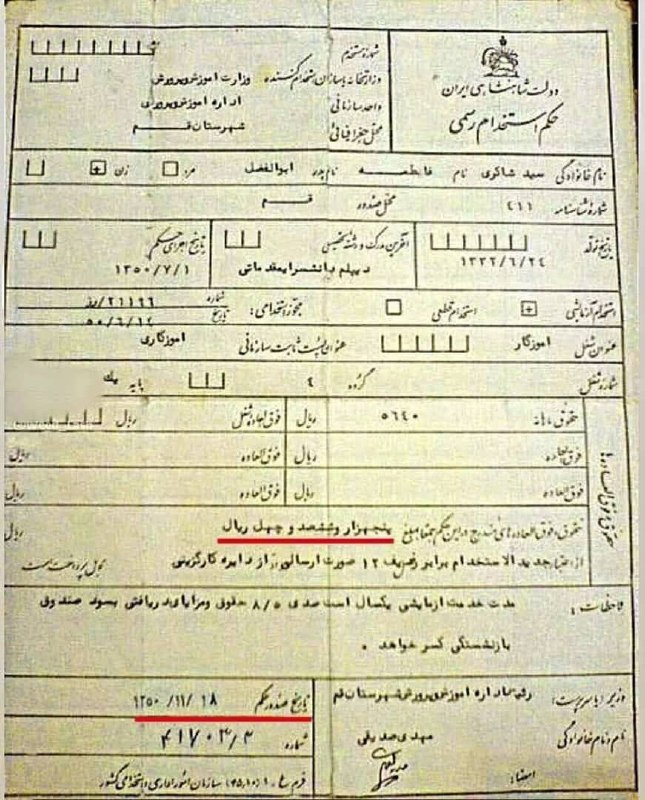 دولت شاهنشاهی ایران
حکم استخدام رسمی
شماره مستخدم
وزارتخانه یا سازمان استخدام کننده وزارت آموزش و پرورش
واحد سازمانی اداره آموزش و پرورش
محل جغرافیائی شهرستان قم
نام خانوادگی سید شاکری نام فاطمه نام پدر ابوالفضل مرد زن +
شماره شناسنامه ٤١١ محل صدور قم
تاریخ تولد ١٣٣٢/٦/٢٤ آخرین مدرک و رشته تحصیلی دیپلم دانشسرایمقدماتی تاریخ اجرای حکم ١٣٥٠/٧/١
استخدام آزمایشی + استخدام قطعی مجوز استخدامی: شماره ٢١١٩٦/رز
تاریخ ٥٠/٦/١٤
عنوان شغل آموزگار عنوان پست ثابت سازمانی آموزگاری
شماره شغل گروه ٤ پایه یک
حقوق و فوق العاده ها
حقوق ماهانه: ٥٦٤٠ ریال فوق العاده شغل ریال
فوق العاده ریال فوق العاده ریال
فوق العاده ریال فوق العاده ریال
حقوق و فوق العاده های مندرج در این حکم جمعا مبلغ پنجهزار و ششصد و چهل ریال
از اعتبار جدید الاستخدام برابر ردیف ١٢ صورت ارسالی از دایره کارگزینی قابل پرداخت است
ملاحظات: مدت خدمت ازمایشی یکسال است صدی ٨/٥ حقوق ومزایای دریافتی بسود صندوق
بازنشستگی کسر خواهد .
وزیر یا سرپرست: رئیس اداره آموزش و پرورش شهرستان قم
نام و نام خانوادگی مهدی صدیقی
امضاء:
تاریخ صدور حکم ١٣٥٠/١١/١٨
شماره ٤١٧٠٣/٣
فرم ع ١ (١٠ر٤٥) سازمان امور اداری و استخدامی کشور